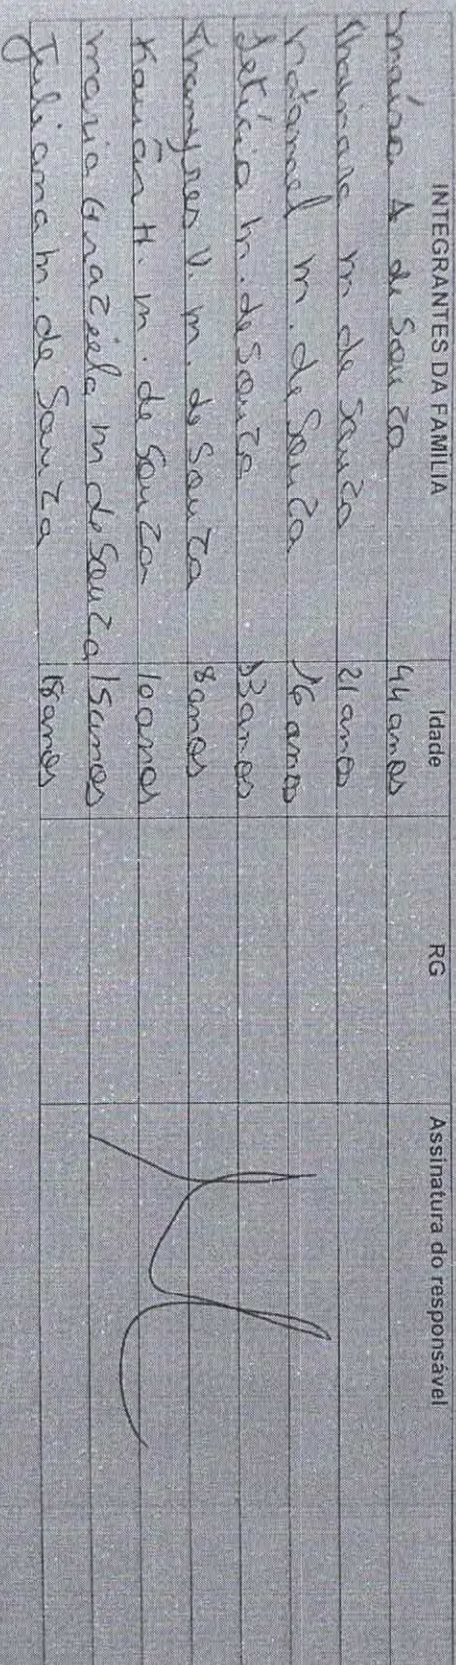 INTEGRANTES DA FAMÍLIA Idade RG Assinatura do responsável
maíra A de Souza 44 anos
Thainara m de Souza 21 anos
natanael m. de Souza 16 anos
Letícia m. de Souza 13 anos
Thamyres V. m. de Souza 8 anos
Kauãn H. m. de Souza 10 anos
maria Graziela m de Souza 15 anos
Juliana m. de Souza 18 anos